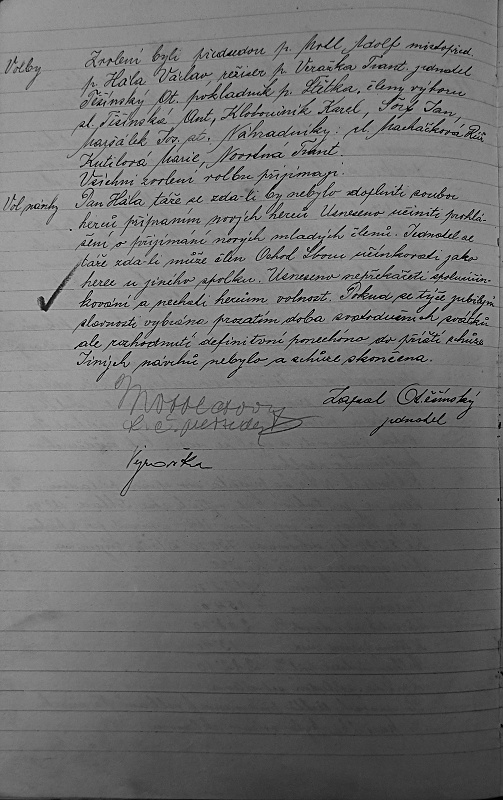 Volby Zvolení byli předsedou p. Motl Adolf místopřed.
p. Hála Václav režiser p. Veražka Frant. jednatel
Těšínský Ot. pokladník p. Štětka, členy výboru
sl. Těšínská Ant, Kloboučník Karel, Šorf Jan,
Maršálek Jos. st. Náhradníky: sl. Macháčková Růž
Kutilová Marie, Novotná Frant.
Všichni zvolení volbu přijímají.
Vol návrhy Pan Hála táže se zda-li by nebylo doplniti soubor
herců přijmaním nových herců. Usneseno učiniti prohlá-
šení o přijímání nových mladých členů. Jednatel se
táže zda-li může člen Ochot. sboru účinkovati jako
herec u jiného spolku. Usneseno nepřekážeti spoluúčin-
kování a nechati hercům volnost. Pokud se týče jubilejní
slavnosti vybrána prozatím doba svatodušních svátků
ale rozhodnutí definitivní ponechána do příští schůze
Jiných návrhů nebylo a schůze skončena.
Zapsal Otěšínský
jednatel